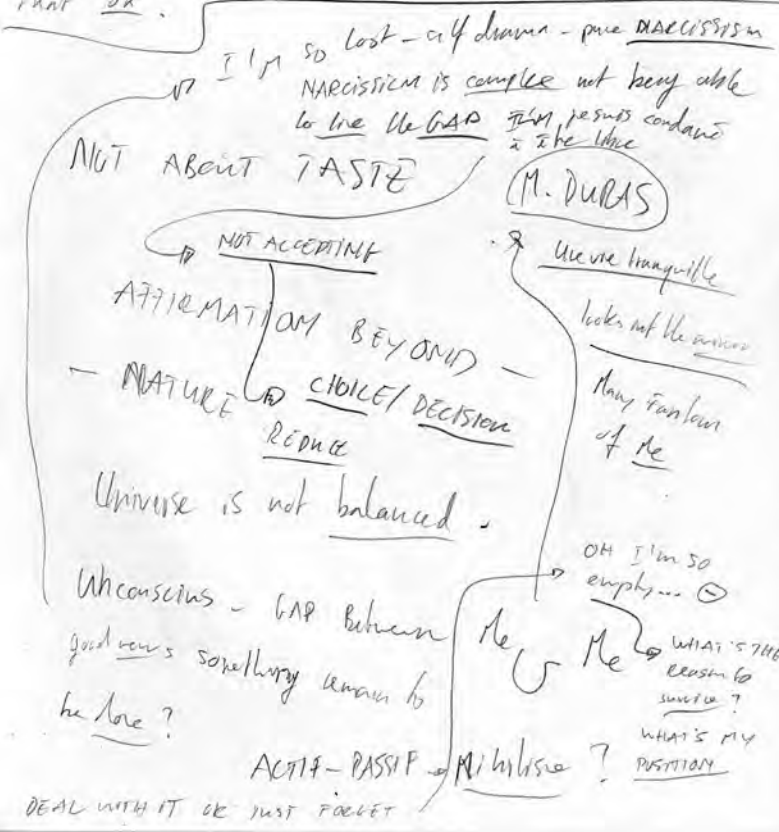 I'M so lost - self drama - pure NARCISSISM
NARCISSISM is complex not being able
to live the GAP je suis condamné
à être libre
NOT ABOUT TASTE
M. DURAS
NOT ACCEPTING
Une vie tranquille
AFFIRMATION BEYOND -
looks at the mirror
- NATURE CHOICE / DECISION
Many
of Me
REDUCE
Universe is not balanced.
OH I'M SO
empty...
Unconscious - GAP Between Me Me
WHAT'S THE
reason to
survive?
good news something remain to
be done?
WHAT'S MY
POSITION
ACTIF - PASSIF Nihilisme ?
DEAL WITH IT OR JUST FORGET